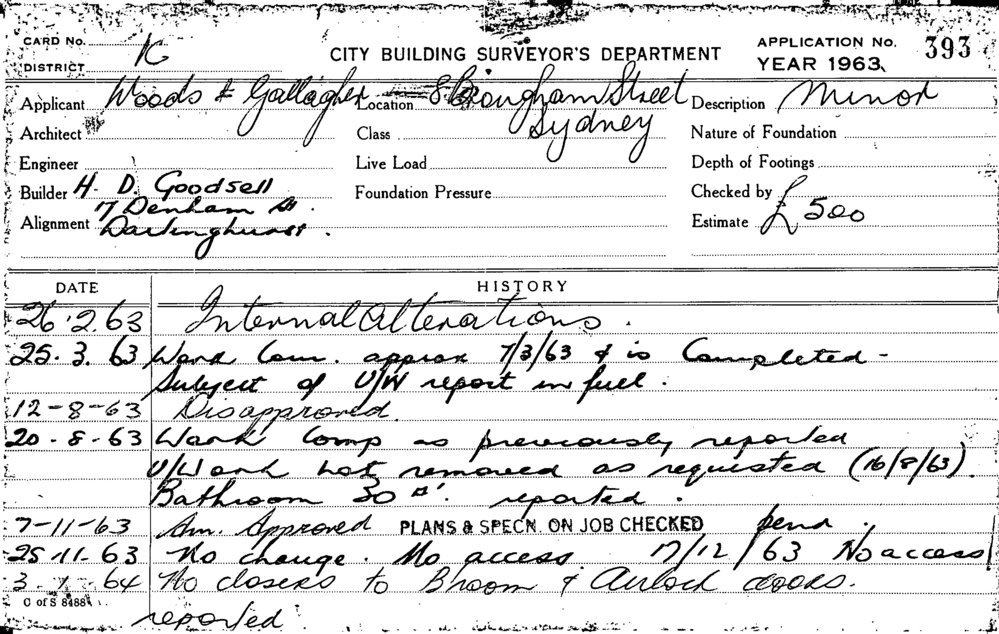 CARD No.
DISTRICT K
CITY BUILDING SURVEYOR'S DEPARTMENT
APPLICATION No. 393
YEAR 1963
Applicant Woods & Gallagher Location 8 Brougham Street Description Minor
Architect Class Sydney Nature of Foundation
Engineer Live Load Depth of Footings
Builder H. D. Goodsell Foundation Pressure Checked by
17 Denham St.
Alignment Darlinghurst. Estimate £500
DATE HISTORY
26.2.63 Internal Alterations.
25.3.63 Work Com. approx 7/3/63 & is Completed -
Subject of U/W report in full.
12-8-63 Disapproved.
20.8.63 Work Comp as previously reported
U/Work not removed as requested (16/8/63).
Bathroom 30 □'. reported.
7-11-63 Am. Approved PLANS & SPECN. ON JOB CHECKED pend.
25-11-63 No change. No access. 17/12/63 No access
3.1.64 No closers to B'room & Airlock doors.
C of S 8488
reported.